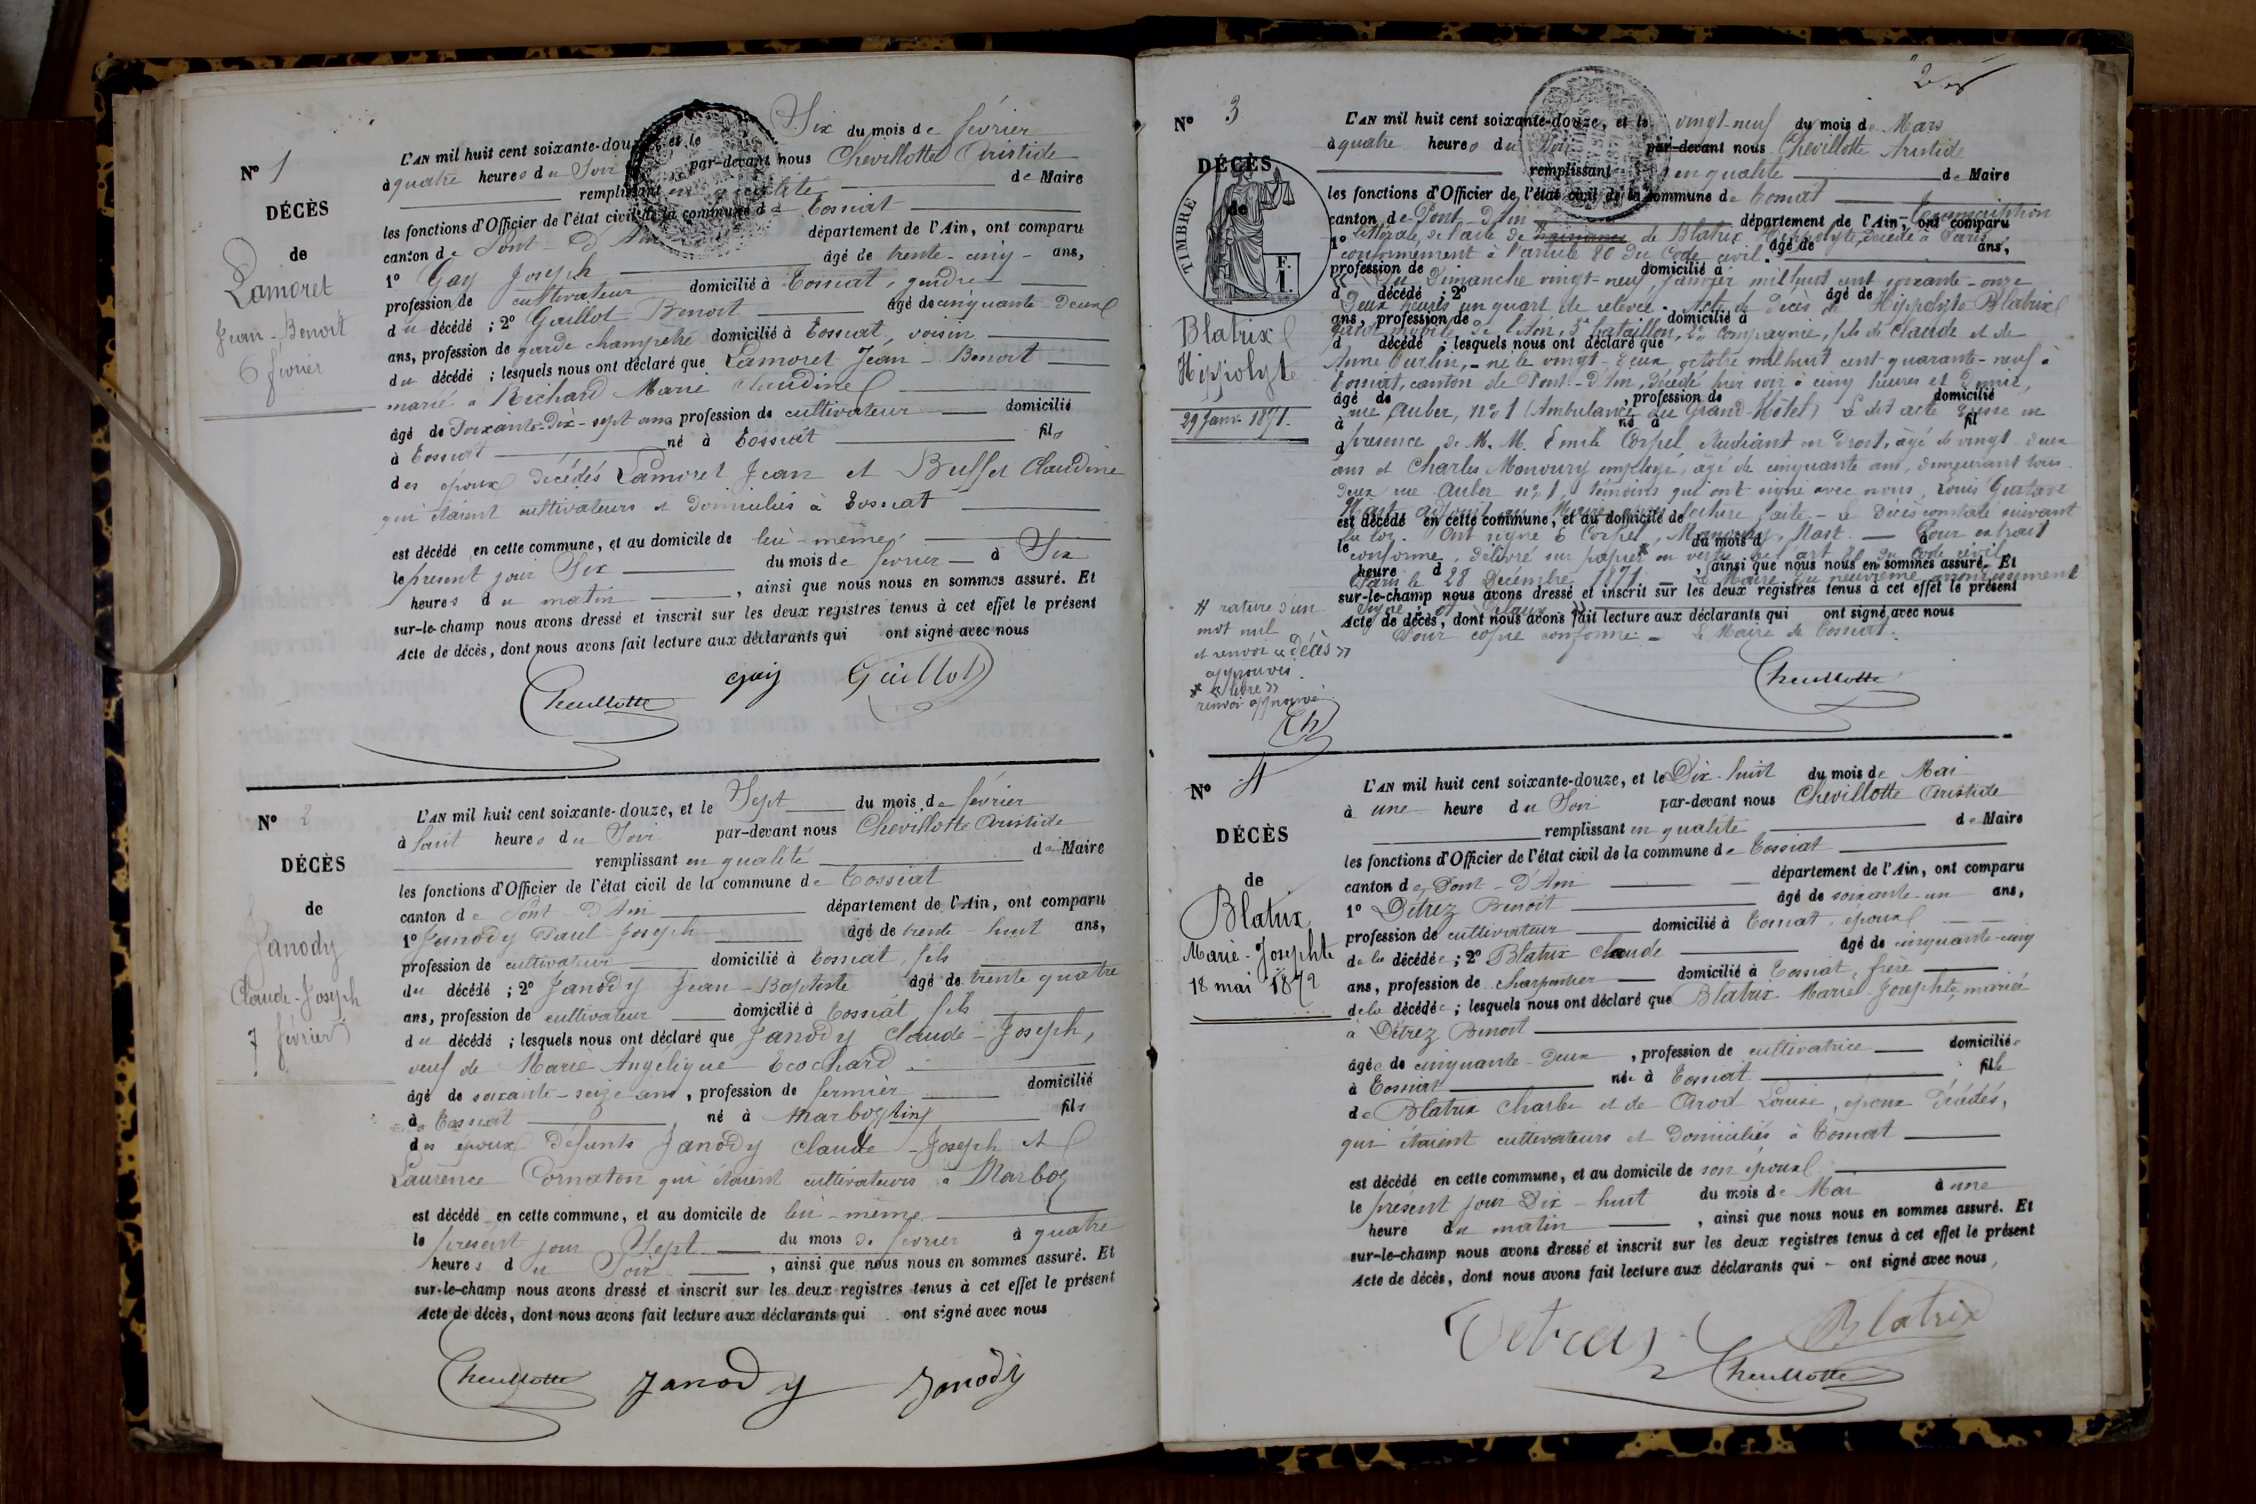 N° 1
DÉCÈS
de
Lamoret
Jean-Benoit
6 février
L'AN mil huit cent soixante-douze, et le Six du mois de février
à quatre heures du Soir par-devant nous Chevillotte Aristide
remplissant en qualité de Maire
les fonctions d'Officier de l'état civil de la commune de Tossiat
canton de Pont-d'Ain département de l'Ain, ont comparu
1° Gay Joseph âgé de trente-cinq ans,
profession de cultivateur domicilié à Tossiat, gendre
du décédé ; 2° Guillot Benoit âgé de cinquante deux
ans, profession de garde champêtre domicilié à Tossiat, voisin
du décédé ; lesquels nous ont déclaré que Lamoret Jean-Benoit
marié à Richard Marie Claudine
âgé de Soixante-Dix-sept ans profession de cultivateur domicilié
à Tossiat né à Tossiat fils
des époux décédés Lamoret Jean et Buffet Claudine
qui étaient cultivateurs et domiciliés à Tossiat
est décédé en cette commune, et au domicile de lui-même
le présent jour Six du mois de février à Six
heures du matin, ainsi que nous nous en sommes assuré. Et
sur-le-champ nous avons dressé et inscrit sur les deux registres tenus à cet effet le présent
Acte de décès, dont nous avons fait lecture aux déclarants qui ont signé avec nous
Chevillotte Gay Guillot
N° 2
DÉCÈS
de
Janody
Claude-Joseph
7 février
L'AN mil huit cent soixante-douze, et le Sept du mois de février
à huit heures du Soir par-devant nous Chevillotte Aristide
remplissant en qualité de Maire
les fonctions d'Officier de l'état civil de la commune de Tossiat
canton de Pont-d'Ain département de l'Ain, ont comparu
1° Janody Paul-Joseph âgé de trente-huit ans,
profession de cultivateur domicilié à Tossiat, fils
du décédé ; 2° Janody Jean-Baptiste âgé de trente quatre
ans, profession de cultivateur domicilié à Tossiat fils
du décédé ; lesquels nous ont déclaré que Janody Claude-Joseph,
veuf de Marie Angélique Ecochard
âgé de soixante-seize ans, profession de fermier domicilié
à Tossiat né à Marboz (Ain) fils
des époux défunts Janody Claude-Joseph et
Laurence Cornaton qui étaient cultivateurs à Marboz
est décédé en cette commune, et au domicile de lui-même
le présent jour Sept du mois de février à quatre
heures du Soir, ainsi que nous nous en sommes assuré. Et
sur-le-champ nous avons dressé et inscrit sur les deux registres tenus à cet effet le présent
Acte de décès, dont nous avons fait lecture aux déclarants qui ont signé avec nous
Chevillotte Janody Janody
2
N° 3
DÉCÈS
de
TIMBRE
F.
1.
Blatrix
Hippolyte
29 Janv. 1871.
L'AN mil huit cent soixante-douze, et le vingt-neuf du mois de Mars
à quatre heures du Soir par-devant nous Chevillotte Aristide
remplissant en qualité de Maire
les fonctions d'Officier de l'état civil de la commune de Tossiat
canton de Pont-d'Ain département de l'Ain, ont comparu Transcription
1° littérale de l'acte de naissance de Blatrix Hippolyte, décédé à Paris âgé de ans,
conformément à l'article 80 du Code civil.
profession de domicilié à
Du Dimanche vingt-neuf Janvier mil huit cent soixante-onze
d décédé ; 2° âgé de
Deux heures un quart de relevée. Acte de décès de Hippolyte Blatrix
ans, profession de domicilié à
garde mobile de l'Ain, 3e bataillon, 2e Compagnie, fils de Claude et de
d décédé ; lesquels nous ont déclaré que
Anne Curlin, né le vingt-deux octobre mil huit cent quarante-neuf à
Tossiat, canton de Pont-d'Ain, décédé hier soir à cinq heures et demie,
âgé de , profession de domicilié
rue Auber, n° 1 (Ambulance du Grand-Hôtel) Le dit acte dressé en
à né à fil
présence de M. M. Emile Corpel, étudiant en droit, âgé de vingt-deux
d
ans et Charles Manoury employé, âgé de cinquante ans, demeurant tous
deux rue Auber n° 1, témoins qui ont signé avec nous, Louis Gustave
Nast, adjoint au Maire, après lecture faite. Le Décès constaté suivant
est décédé en cette commune, et au domicile de
la loi. Ont signé E Corpel, Manoury, Nast. Pour extrait
le du mois d à
conforme, délivré sur papier en vertu de l'art 80 du Code civil,
heure d , ainsi que nous nous en sommes assuré. Et
Paris le 28 Décembre 1871. Le Maire du neuvième arrondissement
sur-le-champ nous avons dressé et inscrit sur les deux registres tenus à cet effet le présent
Acte de décès, dont nous avons fait lecture aux déclarants qui ont signé avec nous
Pour copie conforme. Le Maire de Tossiat.
Chevillotte
# rature d'un
mot nul
et renvoi « Décès »
approuvés.
* « libre »
renvoi approuvé
Ch
N° 4
DÉCÈS
de
Blatrix
Marie-Josephte
18 mai 1872
L'AN mil huit cent soixante-douze, et le Dix-huit du mois de Mai
à une heure du Soir par-devant nous Chevillotte Aristide
remplissant en qualité de Maire
les fonctions d'Officier de l'état civil de la commune de Tossiat
canton de Pont-d'Ain département de l'Ain, ont comparu
1° Détrez Benoit âgé de soixante-un ans,
profession de cultivateur domicilié à Tossiat, époux
de la décédée ; 2° Blatrix Claude âgé de cinquante-cinq
ans, profession de charpentier domicilié à Tossiat, frère
de la décédée ; lesquels nous ont déclaré que Blatrix Marie Josephte, mariée
à Détrez Benoit
âgée de cinquante-deux, profession de cultivatrice domiciliée
à Tossiat née à Tossiat fille
de Blatrix Charles et de Louise, époux décédés,
qui étaient cultivateurs et domiciliés à Tossiat
est décédé en cette commune, et au domicile de son époux
le présent jour Dix-huit du mois de Mai à une
heure du matin, ainsi que nous nous en sommes assuré. Et
sur-le-champ nous avons dressé et inscrit sur les deux registres tenus à cet effet le présent
Acte de décès, dont nous avons fait lecture aux déclarants qui - ont signé avec nous,
Blatrix
Chevillotte